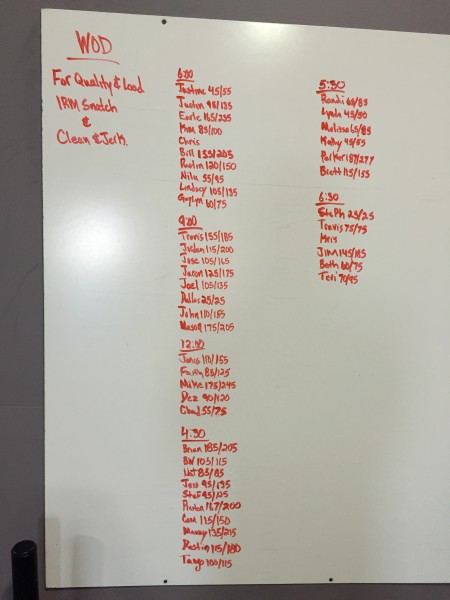 WOD
For Quality & Load
1RM Snatch
&
Clean & Jerk.
6:00
Justine 45/55
Justin 95/135
Earle 165/235
Kim 85/100
Chris
Bill 155/205
120/150
Nila 55/95
Lindsey 105/135
60/75
9:00
Travis 155/185
Jordan 115/200
Jose 105/165
Jason 125/175
Joel 105/135
Dallas 25/25
John 110/155
Mason 175/205
12:00
James 110/155
85/125
Mike 175/245
Dez 90/120
Chad 55/75
4:30
Brian 185/205
BW 105/115
85/85
Jess 95/135
Stef 95/125
Preston 167/200
Cam 115/150
Manny 135/215
Dustin 115/180
Tango 100/115
5:30
Randi 65/85
Lynda 45/50
Melissa 65/85
Kathy 45/55
Parker 187/277
Brett 115/155
6:30
Steph 25/25
Travis 75/75
Kris
JIM 145/185
Beth 60/75
Teri 70/95